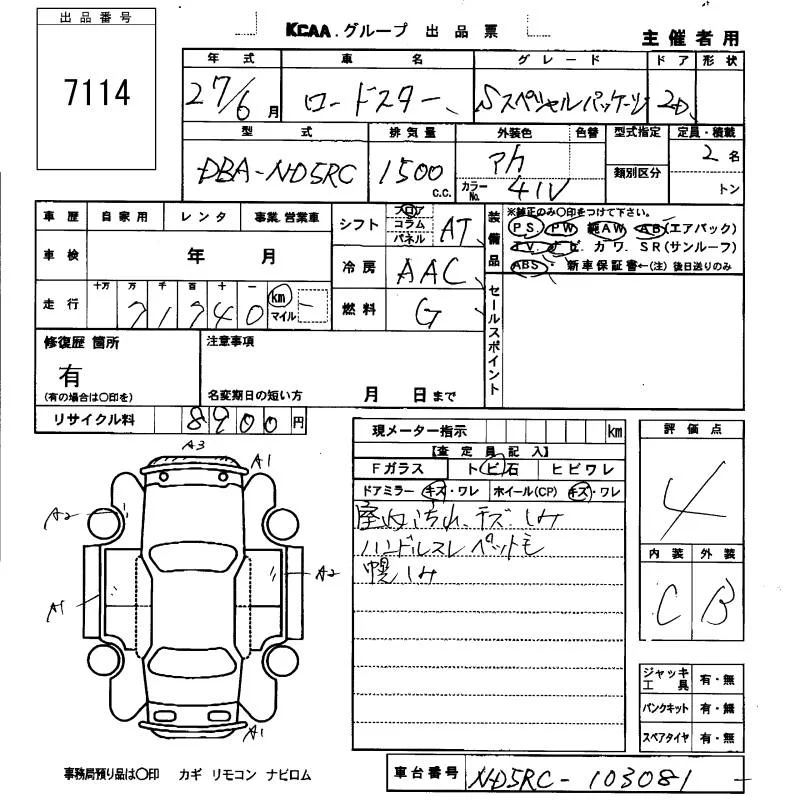 出品番号
7114
KCAA.グループ 出品票
主催者用
年式 車名 グレード ドア 形状
27/6月 ロードスター Sスペシャルパッケージ 2D
型式 排気量 外装色 色替 型式指定 定員・積載
DBA-ND5RC 1500 c.c. アカ 2名
カラーNo. 41V 類別区分 トン
車歴 自家用 レンタ 事業.営業車 シフト フロア コラム パネル AT
車検 年 月 冷房 AAC
走行 十万 万 千 百 十 一 km マイル 燃料 G
71740
装備品 ※純正のみ○印をつけて下さい。
PS PW 純AW AB(エアバック)
TV. ナビ. カワ. SR(サンルーフ)
ABS 新車保証書←(注)後日送りのみ
セールスポイント
修復歴 箇所 注意事項
有
(有の場合は○印を) 名変期日の短い方 月 日まで
リサイクル料 8900円
現メーター指示 km
【査定員記入】
Fガラス トビ石 ヒビワレ
ドアミラー キズ・ワレ ホイール(CP) キズ・ワレ
室内汚れ、キズ・シミ
ハンドルスレ ペット毛
幌シミ
評価点
4
内装 外装
C B
A3
A1
A2
A2
A1
A1
ジャッキ工具 有・無
パンクキット 有・無
スペアタイヤ 有・無
事務局預り品は○印 カギ リモコン ナビロム
車台番号 ND5RC-103081